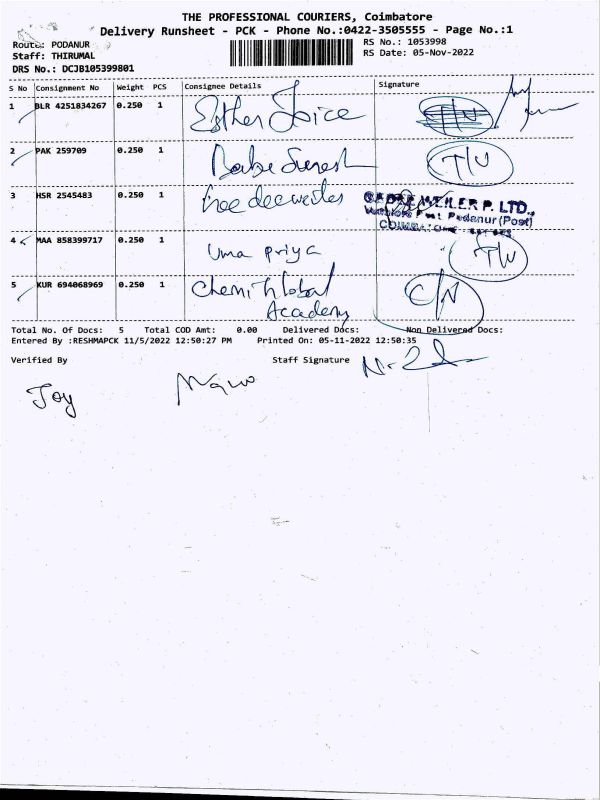 THE PROFESSIONAL COURIERS, Coimbatore
Delivery Runsheet - PCK - Phone No.:0422-3505555 - Page No.:1
Route: PODANUR
RS No.: 1053998
Staff: THIRUMAL
RS Date: 05-Nov-2022
DRS No.: DCJB105399801
S No Consignment No Weight PCS Consignee Details Signature
1 BLR 4251834267 0.250 1 Esther Joice
2 PAK 259709 0.250 1 Suresh
3 HSR 2545483 0.250 1
P. LTD.,
Podanur (Post)
4 MAA 858399717 0.250 1 Uma priya
5 KUR 694068969 0.250 1 Chemi Global
Academy
Total No. Of Docs: 5 Total COD Amt: 0.00 Delivered Docs: Non Delivered Docs:
Entered By :RESHMAPCK 11/5/2022 12:50:27 PM Printed On: 05-11-2022 12:50:35
Verified By Staff Signature
Joy